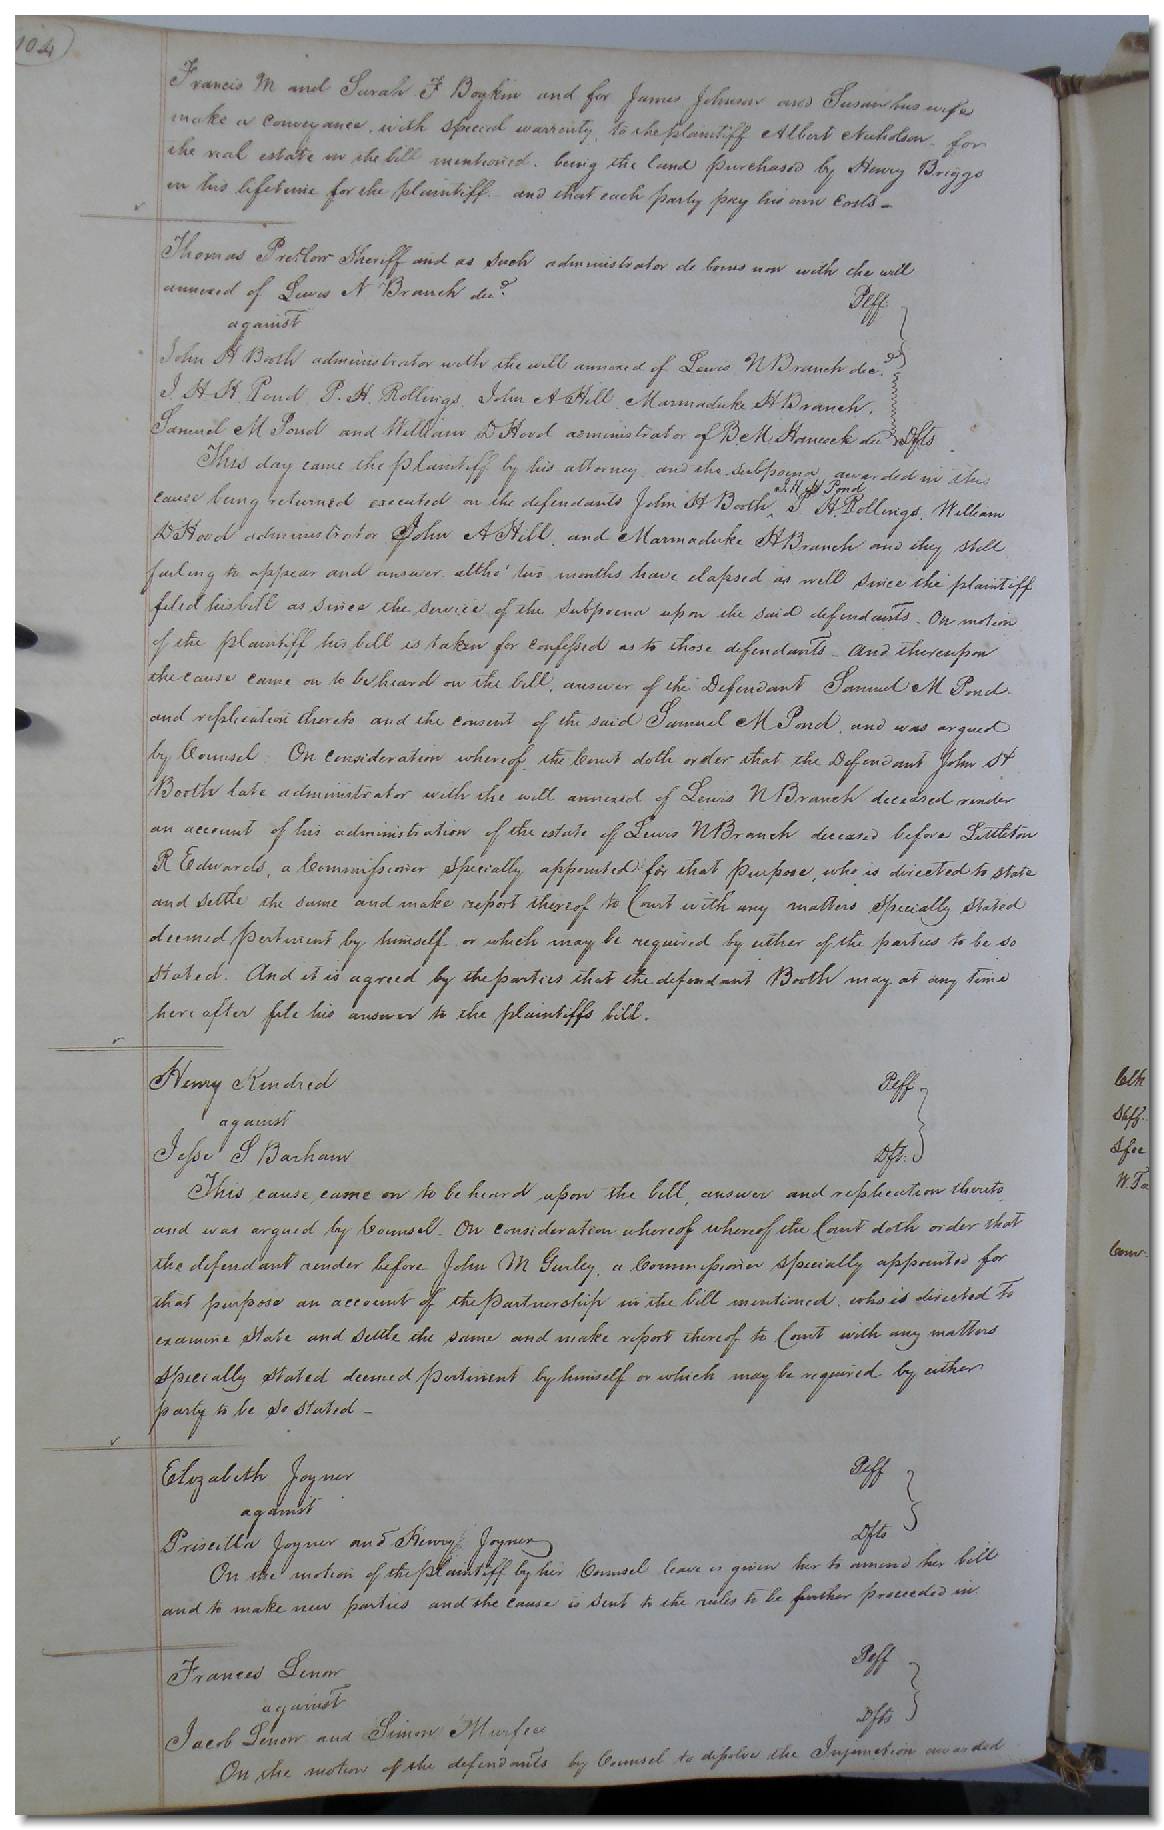 104
Francis M and Sarah F Boykin and for James Johnson and Susan his wife
make a conveyance, with special warranty, to the plaintiff Albert Nicholson, for
the real estate in the bill mentioned, being the land purchased by Henry Briggs
in his lifetime for the plaintiff and that each party pay his own Costs—
Thomas Pretlow Sheriff and as such administrator de bonis non with the will
annexed of Lewis N Branch decd. Plff
against
John H Booth administrator with the will annexed of Lewis N Branch decd.
J. H H. Pond P. H. Rollings, John A Hill Marmaduke H Branch,
Samuel M Pond and William D Hood administrator of B M Hancock dec Dfts
This day came the plaintiff by his attorney and the subpoena awarded in this
J. H H Pond
cause being returned executed on the defendants John H Booth, P H Rollings, William
D Hood administrator John A Hill, and Marmaduke H Branch and they still
failing to appear and answer altho' two months have elapsed as well since the plaintiff
filed his bill as since the service of the subpoena upon the said defendants. On motion
of the plaintiff his bill is taken for confessed as to those defendants— and thereupon
the cause came on to be heard on the bill, answer of the Defendant Samuel M Pond
and replication thereto and the consent of the said Samuel M Pond, and was argued
by Counsel. On consideration whereof the Court doth order that the Defendant John H
Booth late administrator with the will annexed of Lewis N Branch deceased render
an account of his administration of the estate of Lewis N Branch deceased before Littleton
R Edwards, a Commissioner specially appointed for that purpose, who is directed to state
and settle the same and make report thereof to Court with any matters specially stated
deemed pertinent by himself or which may be required by either of the parties to be so
stated. And it is agreed by the parties that the defendant Booth may at any time
hereafter file his answer to the plaintiffs bill.
Henry Kindred Plff
against
Jesse S Barham Dft.
This cause came on to be heard upon the bill, answer and replication thereto
and was argued by Counsel. On consideration whereof whereof the Court doth order that
the defendant render before John M Gurley, a Commissioner specially appointed for
that purpose an account of the partnership in the bill mentioned, who is directed to
examine state and settle the same and make report thereof to Court with any matters
specially stated deemed pertinent by himself or which may be required by either
party to be so stated—
Elizabeth Joyner Plff
against
Priscilla Joyner and Henry Joyner Dfts
On the motion of the plaintiff by her Counsel leave is given her to amend her bill
and to make new parties and the cause is sent to the rules to be further proceeded in
Frances Lenow Plff
against
Jacob Lenow and Simon Murfee Dfts
On the motion of the defendants by Counsel to dissolve the Injunction awarded